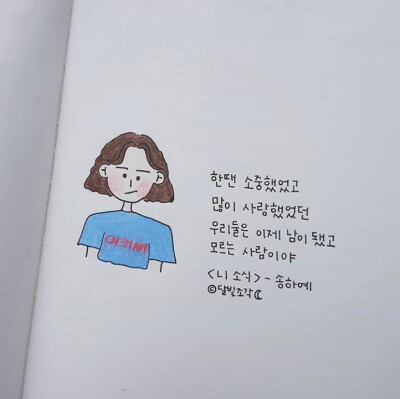 한땐 소중했었고
많이 사랑했었던
우리들은 이제 남이 됐고
모르는 사람이야
<니 소식> - 송하예
©달빛조각☾